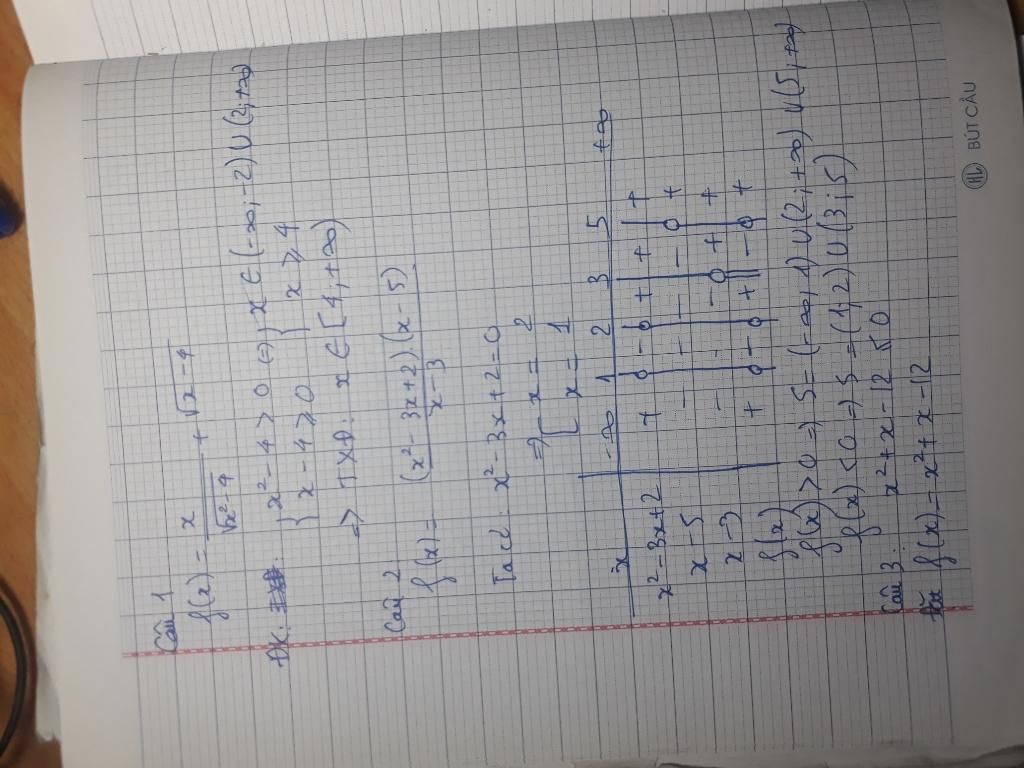 Câu 1
f(x) = x/√(x²-4) + √(x-4)
ĐK: { x²-4 > 0 (=) } x ∈ (-∞; -2) ∪ (2; +∞)
{ x-4 ⩾ 0 } x ⩾ 4
=> TXĐ: x ∈ [4; +∞)
Câu 2
f(x) = (x²-3x+2)(x-5)/(x-3)
Ta có: x²-3x+2=0
=> [ x = 2
[ x = 1
x -∞ 1 2 3 5 +∞
x²-3x+2 + 0 - 0 + + +
x-5 - - - - 0 +
x-3 - - - 0 + +
f(x) + 0 - 0 + || - 0 +
f(x) > 0 => S = (-∞; 1) ∪ (2; +∞) ∪ (5; +∞)
f(x) < 0 => S = (1; 2) ∪ (3; 5)
Câu 3: x²+x-12 ≤ 0
f(x) = x²+x-12
BÚT CÂU